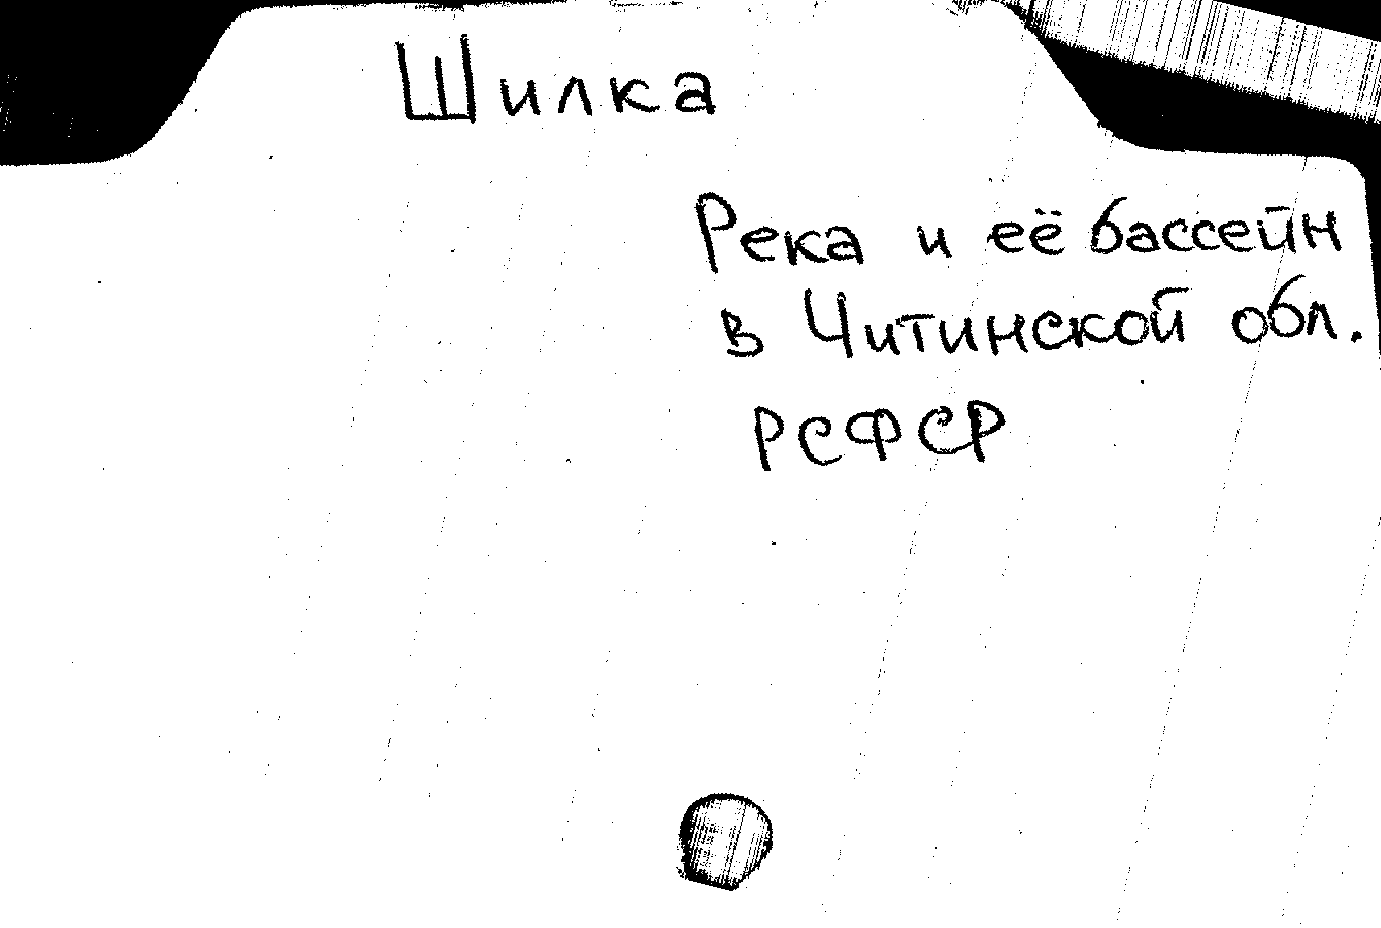 Шилка
Река и её бассейн
в Читинской обл.
РСФСР